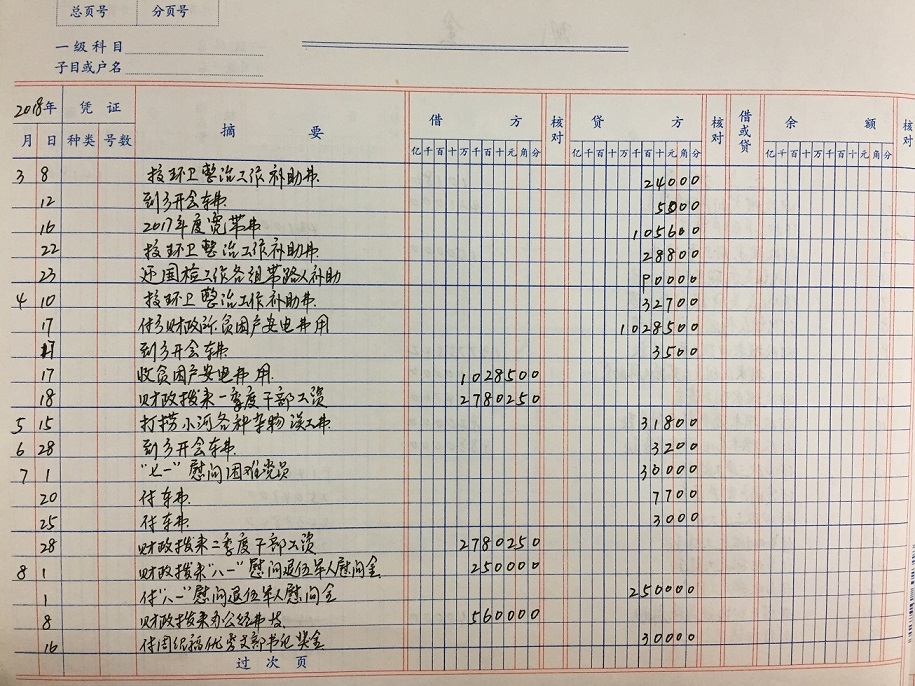 总页号 分页号
一级科目
子目或户名
2018年 凭证 摘要 借方 核对 贷方 核对 借或贷 余额 核对
月 日 种类 号数 亿千百十万千百十元角分 亿千百十万千百十元角分 亿千百十万千百十元角分
3 8 环卫整治工作补助费 24000
12 到乡开会车费 5000
16 2017年度宽带费 105600
22 环卫整治工作补助费 28800
23 还国检工作各组带路人补助 90000
4 10 环卫整治工作补助费 32700
17 付乡财政所贫困户安电费用 1028500
17 到乡开会车费 3500
17 收贫困户安电费用 1028500
18 财政拨来一季度干部工资 2780250
5 15 打捞小河各种杂物误工费 31800
6 28 到乡开会车费 3200
7 1 "七一"慰问困难党员 30000
20 付车费 7700
25 付车费 3000
28 财政拨来二季度干部工资 2780250
8 1 财政拨来"八一"慰问退伍军人慰问金 250000
1 付"八一"慰问退伍军人慰问金 250000
8 财政拨来办公经费 560000
16 付周 优秀支部书记奖金 30000
过次页